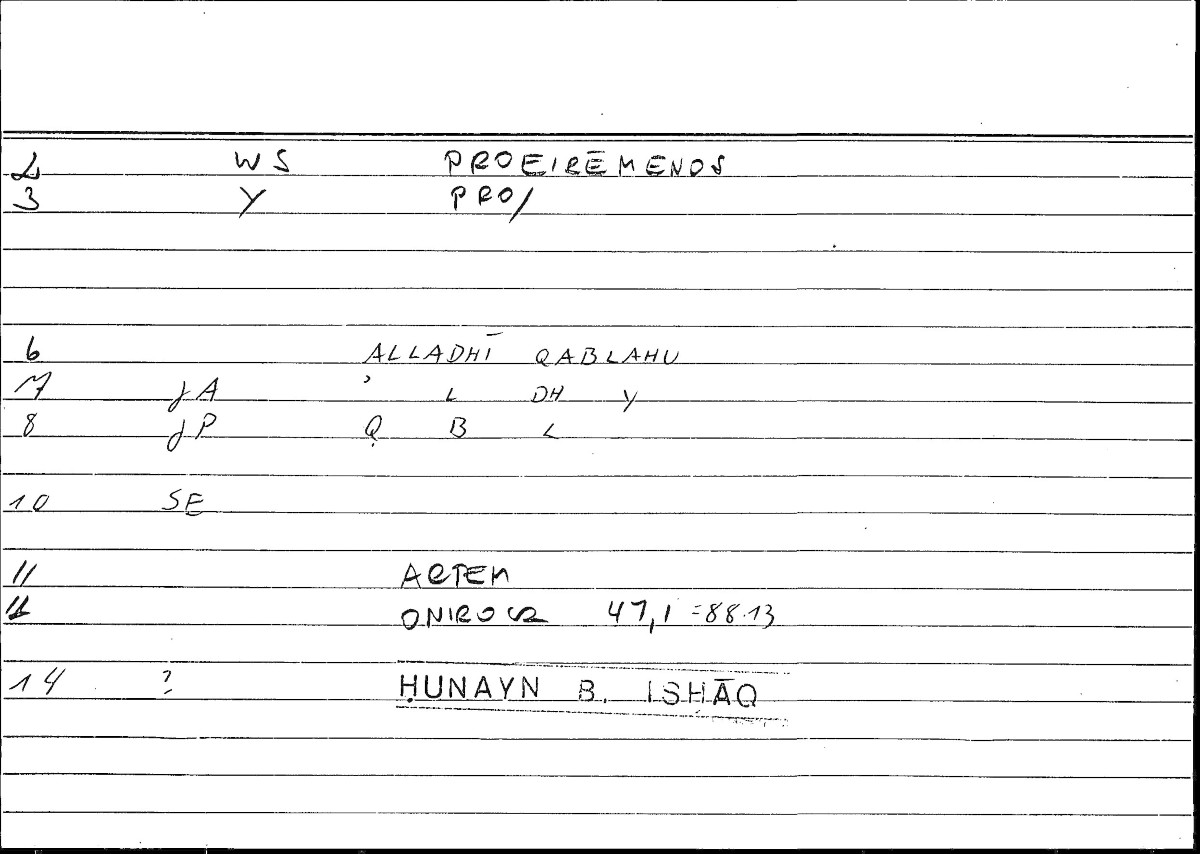 2 WS PROEIRĒMENOS
3 Y PRO/
6 ALLADHĪ QABLAHU
7 JA ʾ L DH Y
8 JP Q B L
10 SE
11 ARTEM
12 ONIROCR 47,1 = 88.13
14 ? ḤUNAYN B. ISḤĀQ